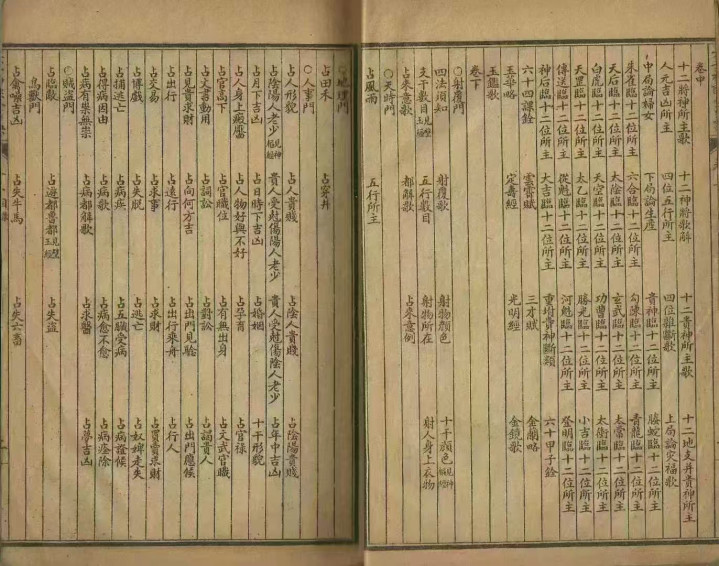 卷中
十二將神所主歌　十二神將歌解　十二貴神所主歌　十二地支幷貴神所主
人元吉凶所主　四位五行所主　四位雜斷歌　上局論灾福歌
中局論婦女　下局論生產　貴神臨十二位所主　螣蛇臨十二位所主
朱雀臨十二位所主　六合臨十二位所主　勾陳臨十二位所主　青龍臨十二位所主
天后臨十二位所主　太陰臨十二位所主　玄武臨十二位所主　太常臨十二位所主
白虎臨十二位所主　天空臨十二位所主　功曹臨十二位所主　太衝臨十二位所主
天罡臨十二位所主　太乙臨十二位所主　勝光臨十二位所主　小吉臨十二位所主
傳送臨十二位所主　從魁臨十二位所主　河魁臨十二位所主　登明臨十二位所主
神后臨十二位所主　大吉臨十二位所主　重犯重神斷頌　六十甲子詮
六十四課詮　雲霄賦　三才賦　金蘭略
玉華略　定壽經　光明經　金鏡歌
玉鑑歌
卷下
○射覆門
四法須知　射覆歌　射物顏色　十干顏色
支干數目　五行數目　射物所在　射人身上衣物
占來意歌　都解歌　占來意例
○天時門
占風雨　五行所主
○地理門
占田禾　占家井
○人事門
占人形貌　占人貴賤　占陰人貴賤　占陰陽貴賤
占陰陽人老少　貴人受尅傷陽人老少　貴人受尅傷陰人老少　占年中吉凶
占月下吉凶　占日時下吉凶　占婚姻　十干形貌
占人身上瘢靨　占人物好與不好　占孕育　占官祿
占官高下　占官職位　占有無出身　占文武官職
占文書動用　占詞訟　占對訟　占謁貴人
占見貴求財　占向何方吉　占出門見驗　占出門應候
占出行　占遠行　占出行乘舟　占行人
占交易　占求事　占求財　占買賣求財
占博戲　占失脫　占逃亡　占奴婢走失
占捕逃亡　占病疾　占五臟受病　占病證候
占得病因由　占病歌　占病愈不愈　占病痊除
占病有祟無祟　占病都解歌　占求醫　占夢吉凶
○賊盜門
占臨敵　占遊都魯都　占失盜
鳥獸門
占禽噪吉凶　占失牛馬　占失亡畜